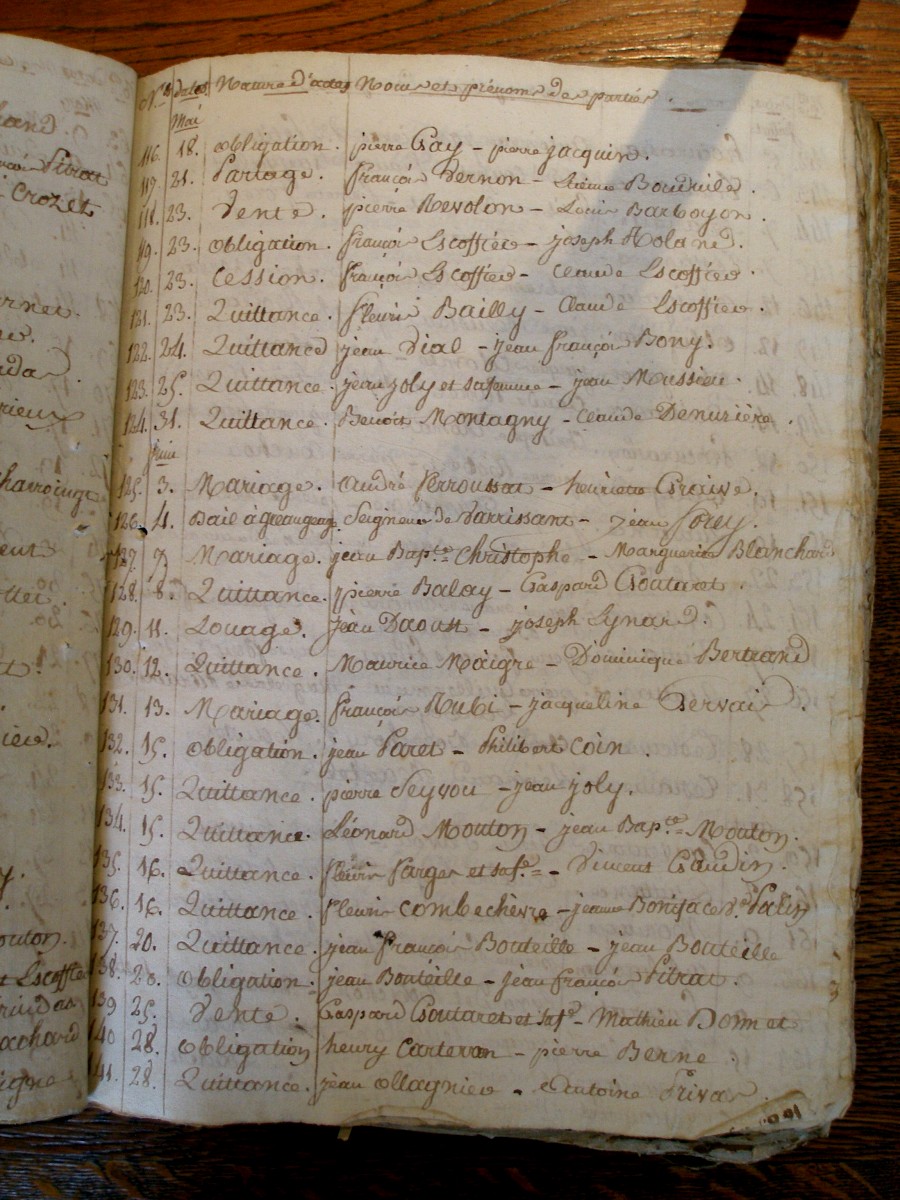 and.
Pitrat
Crozet
N.os dates Nature d'actes Noms et prénoms des parties
Mai
116. 18. obligation. pierre Gay - pierre jacquin.
117. 21. Partage. françois Vernon -
118. 23. Vente. pierre Revolon - Louis Barboyon.
119. 23. obligation. françois Escoffier - joseph Roland.
120. 23. Cession. françois Escoffier - Claude Escoffier
121. 23. Quittance. fleuri Bailly - Claude Escoffier.
122. 24. Quittance jean Vial - jean françois Bony.
123. 25. Quittance. jean joly et sa femme - jean Moussieu.
124. 31. Quittance. Benoit Montagny - Claude Denuzière.
juin
125. 3. Mariage. andré Perroussat - henriette
126. 4. Bail à Seigneur de Varrissant - jean
127. 7. Mariage. jean Bap.te Christophe - Marguerite Blanchard
128. 8. Quittance. pierre Balay - Gaspard Goutaret.
129. 11. Louage. jean Daoust - joseph Eynard.
130. 12. Quittance. Maurice Maigre - Dominique Bertrand
131. 13. Mariage. françois Rubi - jacqueline Gervais.
132. 15. obligation. jean Paret - Philibert Coin.
133. 15. Quittance. pierre Seyvou - jean joly.
134. 15. Quittance. Léonard Mouton - jean Bap.te Mouton.
135. 16. Quittance. fleurie farges et sa f.e - Vincent Gaudin.
136. 16. Quittance. fleurie Combechèvre - jeanne Boniface v.e Palin
137. 20. Quittance. jean françois Bouteille - jean Bouteille
138. 20. obligation. jean Bouteille - jean françois Pitrat.
139 25. Vente. Gaspard Goutaret et sa f.e - Mathieu Donnet
140 28. obligation henry Carteran - pierre Berne.
141. 28. Quittance. jean ollagnier - antoine Privas.